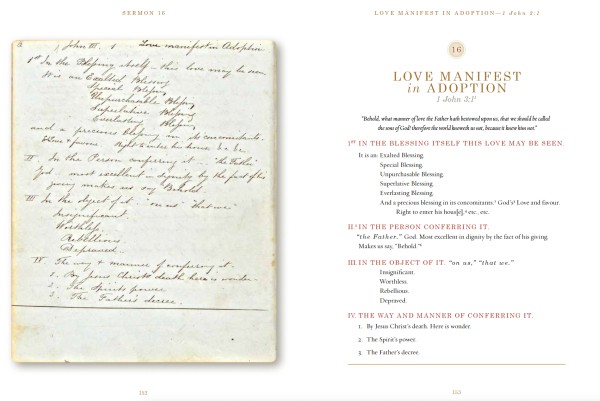 SERMON 16
a ) John III. 1 Love manifest in Adoption
1st In the Blessing itself – this love may be seen.
It is an Exalted Blessing
Special Blessing,
Unpurchasable Blessing,
Superlative Blessing
Everlasting Blessing,
and a precious blessing in its concomitants –
Love & favour. Right to enter his house &c &c
II In the Person conferring it – "the Father"
God – most excellent in dignity by the fact of his
giving makes us say Behold.
III In the object of it. "on us" "that we"
Insignificant.
Worthless.
Rebellious.
Depraved.
IV. The way & manner of conferring it.
1. By Jesus Christ's death here is wonder.
2. The Spirit's power
3. The Father's decree.
152
LOVE MANIFEST IN ADOPTION—1 John 3:1
16
LOVE MANIFEST
in ADOPTION
1 John 3:1¹
"Behold, what manner of love the Father hath bestowed upon us, that we should be called
the sons of God: therefore the world knoweth us not, because it knew him not."
1ST IN THE BLESSING ITSELF THIS LOVE MAY BE SEEN.
It is an Exalted Blessing.
Special Blessing.
Unpurchasable Blessing.
Superlative Blessing.
Everlasting Blessing.
And a precious blessing in its concomitants.² God's³ Love and favour.
Right to enter his hous[e],⁴ etc., etc.
II.⁵ IN THE PERSON CONFERRING IT.
"the Father." God. Most excellent in dignity by the fact of his giving.
Makes us say, "Behold."⁶
III. IN THE OBJECT OF IT. "on us," "that we."
Insignificant.
Worthless.
Rebellious.
Depraved.
IV. THE WAY AND MANNER OF CONFERRING IT.
1. By Jesus Christ's death. Here is wonder.
2. The Spirit's power.
3. The Father's decree.
153